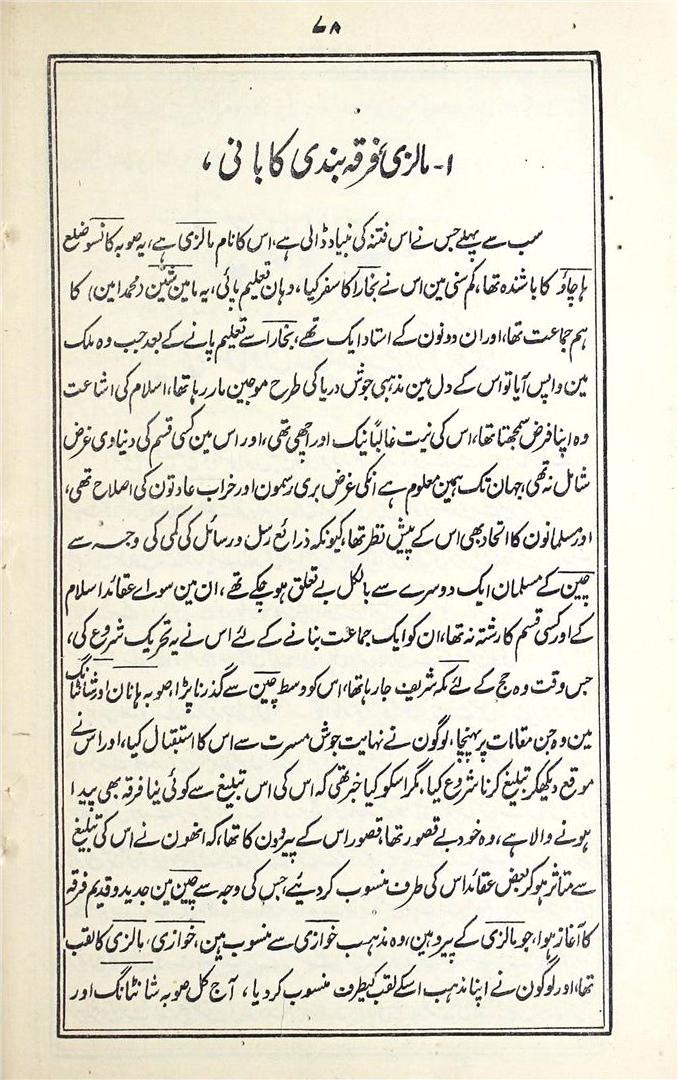 ۷۸
۱۔ مالزی، فرقہ بندی کا بانی،
سب سے پہلے جس نے اس فتنہ کی بنیاد ڈالی ہے، اس کا نام مالزی ہے، یہ صوبہ کانسو ضلع
ہاچاؤ کا باشندہ تھا، کم سنی مین اس نے بخارا کا سفر کیا، وہان تعلیم پائی، یہ مامین شین (محمد امین) کا
ہم جماعت تھا، اور ان دونون کے استاد ایک تھے، بخارا سے تعلیم پانے کے بعد جب وہ ملک
مین واپس آیا تو اس کے دل مین مذہبی جوش دریا کی طرح موجین مار رہا تھا، اسلام کی اشاعت
وہ اپنا فرض سمجھتا تھا، اس کی نیت غالباً نیک اور اچھی تھی، اور اس مین کسی قسم کی دنیاوی غرض
شامل نہ تھی، جہان تک ہمین معلوم ہے انکی غرض بری رسمون اور خراب عادتون کی اصلاح تھی،
اور مسلمانون کا اتحاد بھی اس کے پیش نظر تھا، کیونکہ ذرائع رسل و رسائل کی کمی کی وجہ سے
چین کے مسلمان ایک دوسرے سے بالکل بے تعلق ہو چکے تھے، ان مین سواے عقائد اسلام
کے اور کسی قسم کا رشتہ نہ تھا، ان کو ایک جماعت بنانے کے لئے اس نے یہ تحریک شروع کی،
جس وقت وہ حج کے لئے مکہ شریف جا رہا تھا، اس کو وسط چین سے گذرنا پڑا، صوبہ ہانان اور شانٹانگ
مین وہ جن مقامات پر پہنچا، لوگون نے نہایت جوش مسرت سے اس کا استقبال کیا، اور اس نے
موقع دیکھکر تبلیغ کرنا شروع کیا، مگر اسکو کیا خبر تھی کہ اس کی اس تبلیغ سے کوئی نیا فرقہ بھی پیدا
ہونے والا ہے، وہ خود بے قصور تھا، قصور اس کے پیرون کا تھا، کہ انھون نے اس کی تبلیغ
سے متاثر ہو کر بعض عقائد اس کی طرف منسوب کر دیئے، جس کی وجہ سے چین مین جدید و قدیم فرقہ
کا آغاز ہوا، جو مالزی کے پیر وہین، وہ مذہب خوازی سے منسوب ہین، خوازی، مالزی کا لقب
تھا، اور لوگون نے اپنا مذہب اسکے لقب کیطرف منسوب کر دیا، آج کل صوبہ شانٹانگ اور